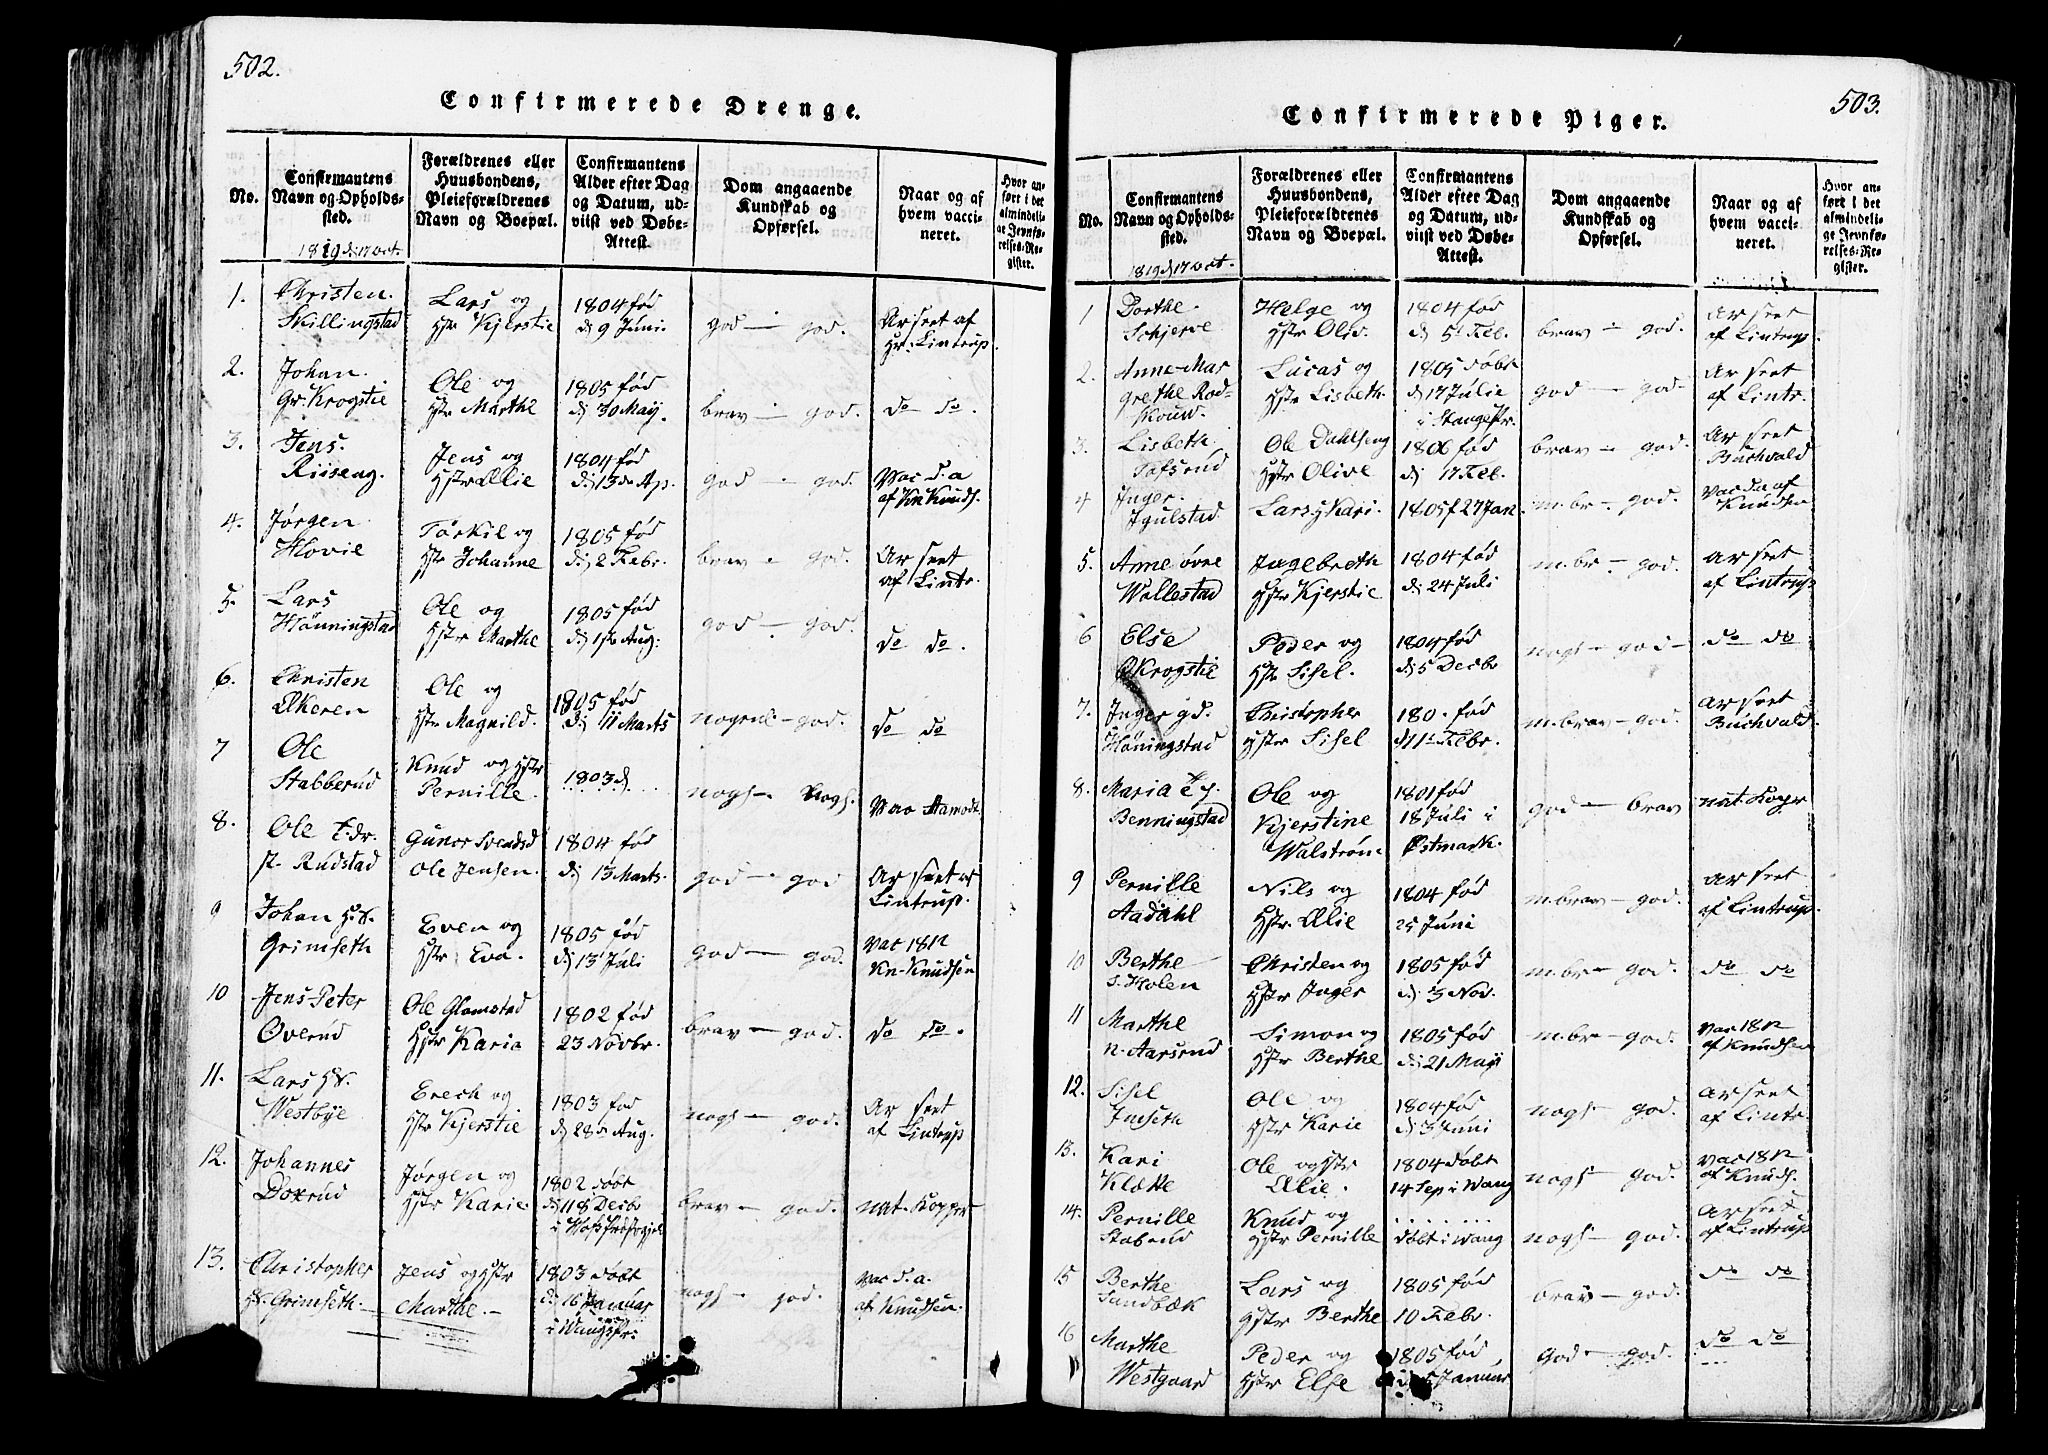 502.
Confirmerede Drenge.
No.
Confirmantens
Navn og Opholds-
sted.
Forældrenes eller
Huusbondens,
Pleieforældrenes
Navn og Boepæl.
Confirmantens
Alder efter Dag
og Datum, ud-
viist ved Døbe-
Attest.
Dom angaaende
Kundskab og
Opførsel.
Naar og af
hvem vacci-
neret.
Hvor an-
ført i det
almindeli-
ge Jevnfø-
relses-Re-
gister.
1819 d 17 Oct.
1.
Christen
Skillingstad
Lars og
Hstr Kjerstie
1804 fød
d 9 Juni.
god - god.
Ar seet af
Hr. Lintrup.
2.
Johan
Gr. Krogstie
Ole og
Hstr Marthe
1805 fød
d 30 May.
brav - god.
do do.
3.
Jens
Riiseng.
Jens og
Hstr Ælie
1804 fød
d 13de Ap.
god - god.
Vac d. a
af Kn Knuds.
4.
Jørgen
Hovie
Torkil og
Hstr Johanne
1805 fød
d 2 Febr.
brav - god.
Ar seet
af Lintr.
5.
Lars
Hönningstad
Ole og
Hstr Marthe
1805 fød
d 1ste Aug.
god - god.
do do.
6.
Christen
Ækeren
Ole og
Hstr Magnild.
1805 fød
d 11 Marts
god.
do do
7
Ole
Stabberud
Knud og Hstr
Pernille.
1803 d
nogs - nogs.
Vac Aamodt
8.
Ole
Rudstad
Ole Jensen.
1804 fød
d 13 Marts.
god - god
Ar seet af
Lintrup.
9
Johan
Grimseth
Even og
Hstr Eva.
1805 fød
d 13 Juli
god - god.
Vac 1812
Kn. Knudsen
10
Jens Peter
Overud
Ole Glomstad
Hstr Karie
1802 fød
23 Novbr.
brav - god.
do do.
11.
Lars
Westbye
Erech og
Hstr Kjerstie
1803 fød
d 28de Aug.
nogs - god.
Ar seet
af Lintrup
12.
Johannes
Doxrud
Jørgen og
Hstr Karie
1802 døbt
d 18 Decbr
brav - god.
nat. Kopper
13.
Christopher
Grimseth.
Jens og Hstr
Marthe.
1803 døbt
d 16 Januar
i Wangs Pr:
nogs - god.
Vac d. a.
af Knudsen.
503.
Confirmerede Piger.
No.
Confirmantens
Navn og Opholds-
sted.
Forældrenes eller
Huusbondens,
Pleieforældrenes
Navn og Boepæl.
Confirmantens
Alder efter Dag
og Datum, ud-
viist ved Døbe-
Attest.
Dom angaaende
Kundskab og
Opførsel.
Naar og af
hvem vacci-
neret.
Hvor an-
ført i det
almindeli-
ge Jevnfø-
relses-Re-
gister.
1819 d 17 Oct.
1
Dorthe
Schjerve
Helge og
Hstr Oliv.
1804 fød
d 5t Feb.
brav - god.
Ar seet
af Lintrup.
2.
Anne Mar
grethe Rod-
skouw.
Lucas og
Hstr Lisbeth.
1805 døbt
d 17 Julie
i Stange Pr.
god - god
Ar seet
af Lintr.
3.
Lisbeth
Tofsrud
Ole Dahlseng
Hstr Olive
fød
d 17 Feb.
brav - god.
Ar seet
Buchvald
4
Inger
Igulstad
Lars H Kari.
1805 f 27 Jan.
m.br - god.
Vac d.a af
Knudsen
5.
Anne øvre
Wollestad
Ingebreth
Hstr Kjerstie
1804 fød
d 24 Juli
m.br - god.
Ar seet
af Lintrup
6
Else
Krogstie
Peder og
Hstr Sisel.
1804 fød
d 5 Decbr
nogs - god -
do do
7.
Inger gd.
Höningstad
Christopher
Hstr Sisel
180. fød
d 11te Febr.
m.brav - god.
Ar seet
Buchvald.
8.
Maria
Benningstad
Ole og
Kjerstine
Walstrøm
1801 fød
18 Juli i
Østmark.
god - brav
nat. Kopr
9
Pernille
Aadahl
Nils og
Hstr. Ælie
1804 fød
25 Juni
m.brav - god.
Ar seet
af Lintrup.
10
Berthe
S. Holen
Christen og
Hstr Inger
1805 fød
d 3 Nov.
m.br - god.
do do
11
Marthe
n. Aarsrud
Simon og
Hstr Berthe
1805 fød
d 21 May
m.br - god.
Vac 1812
af Knudsen
12.
Sisel
Imseth
Ole og
Hstr Karie
1804 fød
d 3 Juni
nogs - god.
Ar seet
af Lintr.
13.
Kari
Klætte
Ole og Hstr
Ælie.
1804 døbt
14 Sep i Wang
nogs - god.
Vac 1812
af Knuds.
14.
Pernille
Stabrud
Knud og
Hstr Pernille
døbt i Wang
nogs - god.
Ar seet
af Lintrup
15
Berthe
Sundbæk
Lars og
Hstr Berthe
1805 fød
10 Febr.
brav - god.
do do
16
Marthe
Westgaard
Peder og
Hstr Else
1805 fød
d 5 Januar
God - god.
do do